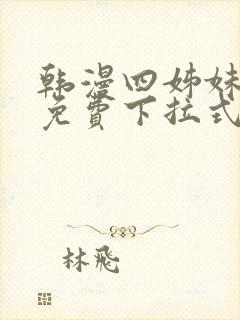 韩漫四姊妹
免費下拉式
林飛